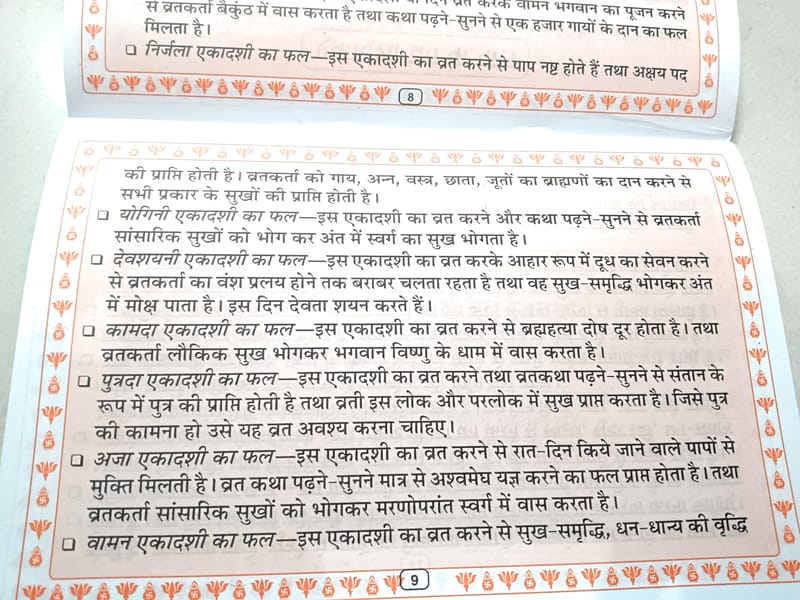 से व्रतकर्ता बैकुंठ में वास करता है तथा कथा पढ़ने-सुनने से एक हजार गायों के दान का फल
मिलता है।
❑ निर्जला एकादशी का फल—इस एकादशी का व्रत करने से पाप नष्ट होते हैं तथा अक्षय पद
8
की प्राप्ति होती है। व्रतकर्ता को गाय, अन्न, वस्त्र, छाता, जूतों का ब्राह्मणों का दान करने से
सभी प्रकार के सुखों की प्राप्ति होती है।
❑ योगिनी एकादशी का फल—इस एकादशी का व्रत करने और कथा पढ़ने-सुनने से व्रतकर्ता
सांसारिक सुखों को भोग कर अंत में स्वर्ग का सुख भोगता है।
❑ देवशयनी एकादशी का फल—इस एकादशी का व्रत करके आहार रूप में दूध का सेवन करने
से व्रतकर्ता का वंश प्रलय होने तक बराबर चलता रहता है तथा वह सुख-समृद्धि भोगकर अंत
में मोक्ष पाता है। इस दिन देवता शयन करते हैं।
❑ कामदा एकादशी का फल—इस एकादशी का व्रत करने से ब्रह्महत्या दोष दूर होता है। तथा
व्रतकर्ता लौकिक सुख भोगकर भगवान विष्णु के धाम में वास करता है।
❑ पुत्रदा एकादशी का फल—इस एकादशी का व्रत करने तथा व्रतकथा पढ़ने-सुनने से संतान के
रूप में पुत्र की प्राप्ति होती है तथा व्रती इस लोक और परलोक में सुख प्राप्त करता है। जिसे पुत्र
की कामना हो उसे यह व्रत अवश्य करना चाहिए।
❑ अजा एकादशी का फल—इस एकादशी का व्रत करने से रात-दिन किये जाने वाले पापों से
मुक्ति मिलती है। व्रत कथा पढ़ने-सुनने मात्र से अश्वमेघ यज्ञ करने का फल प्राप्त होता है। तथा
व्रतकर्ता सांसारिक सुखों को भोगकर मरणोपरांत स्वर्ग में वास करता है।
❑ वामन एकादशी का फल—इस एकादशी का व्रत करने से सुख-समृद्धि, धन-धान्य की वृद्धि
9